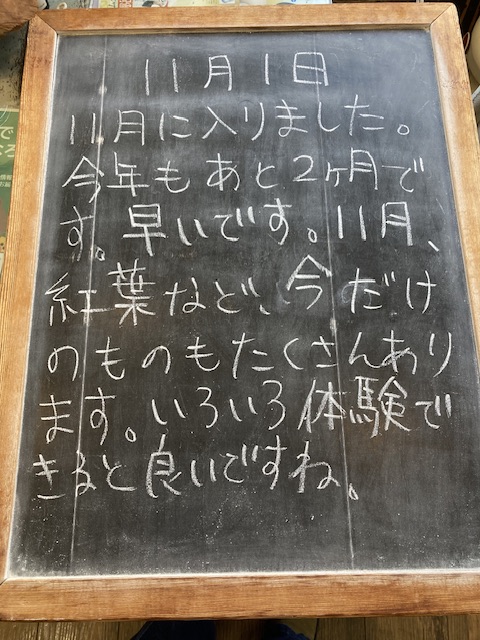 11月1日
11月に入りました。
今年もあと2ヶ月で
す。早いです。11月、
紅葉など、今だけ
のものもたくさんあり
ます。いろいろ体験で
きると良いですね。